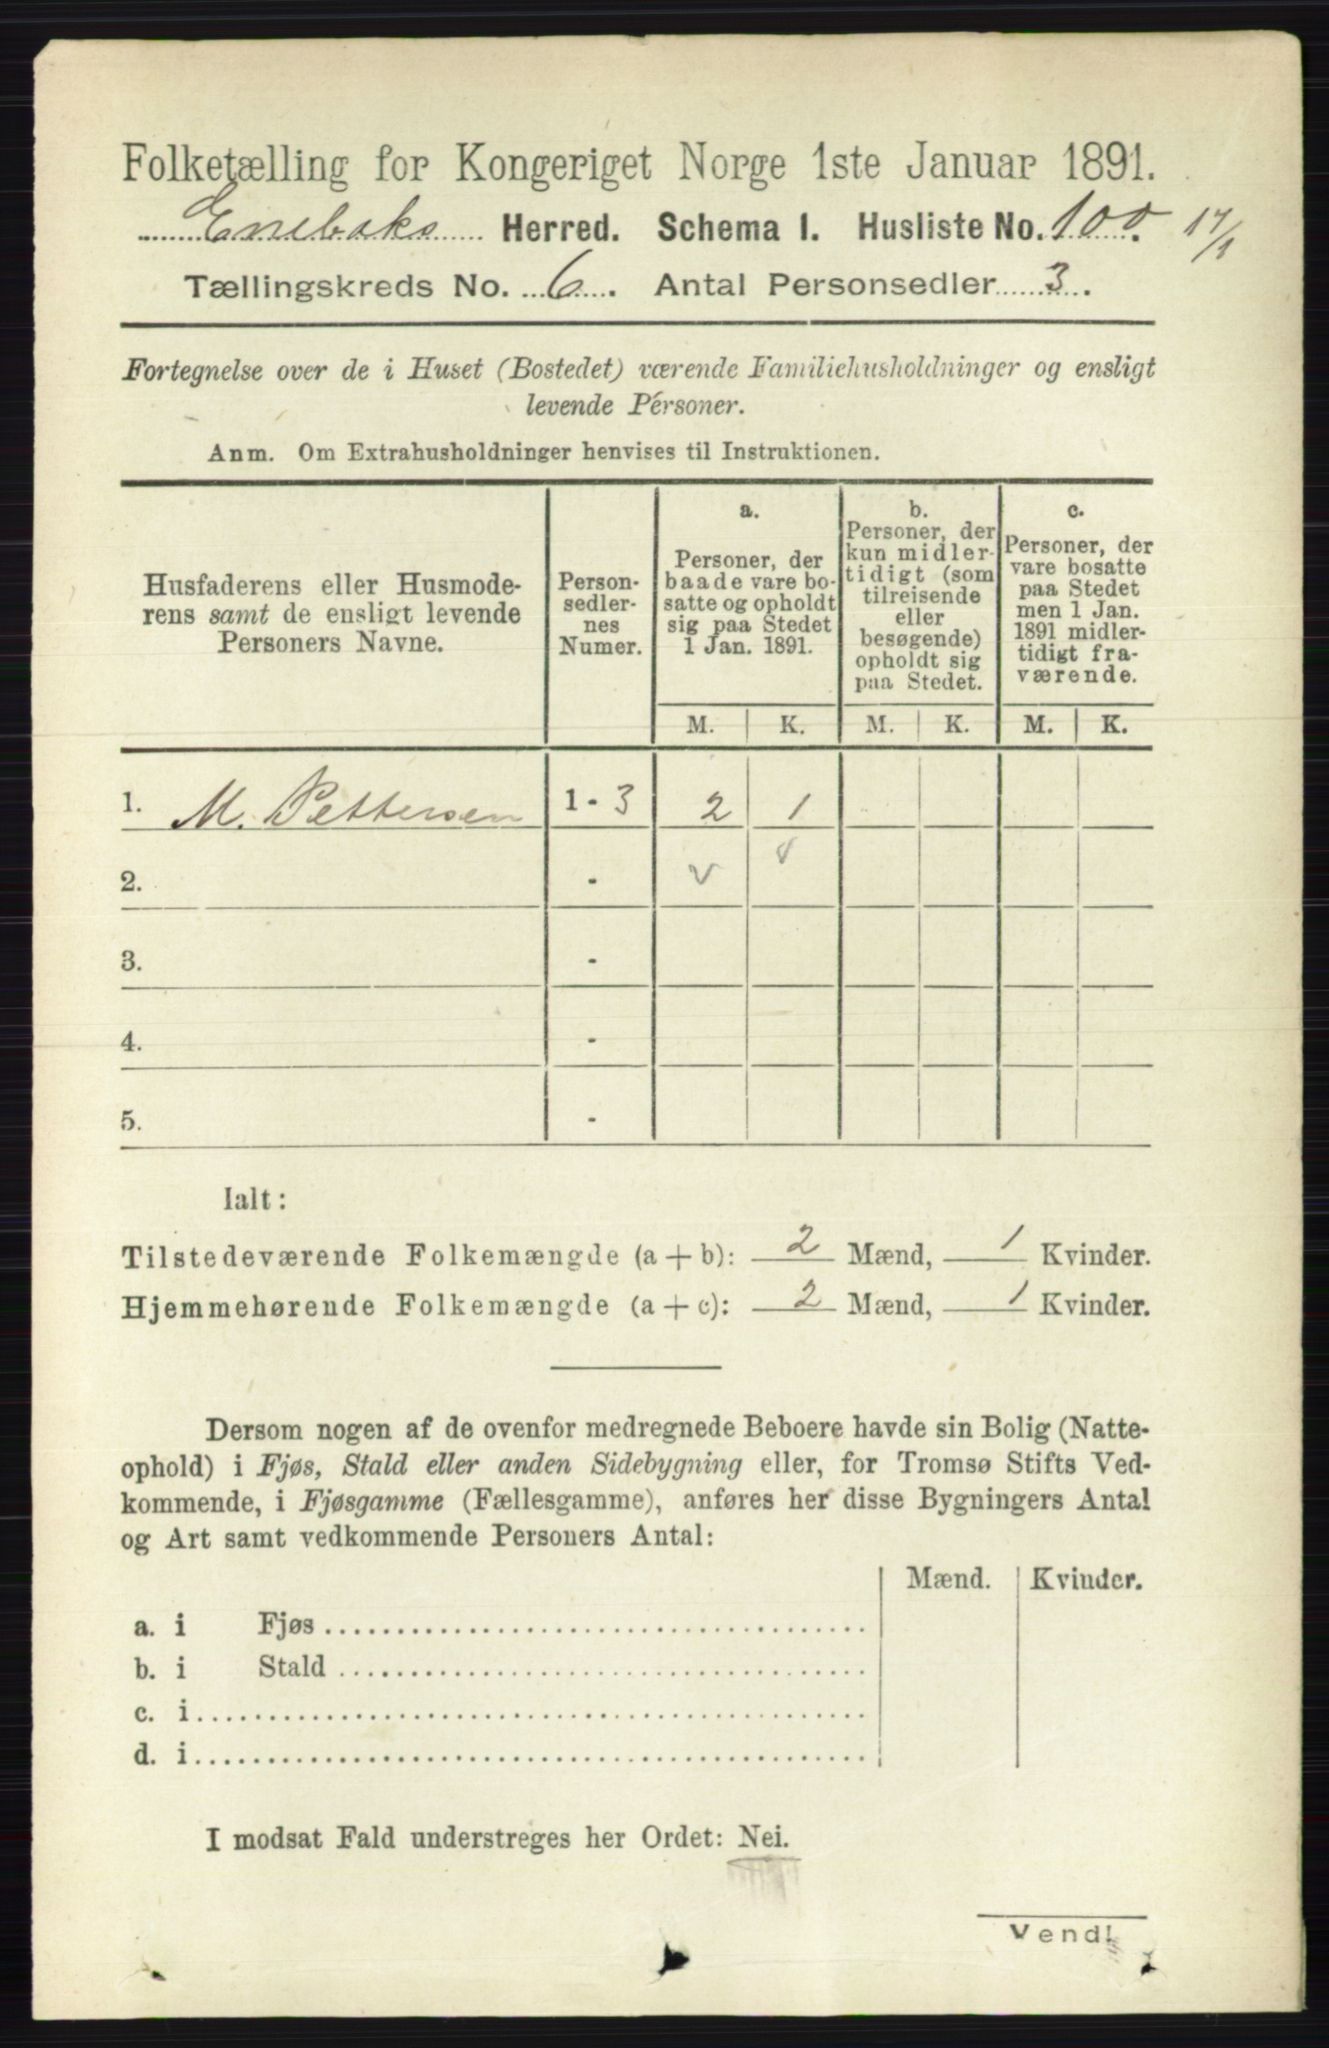 Folketælling for Kongeriget Norge 1ste Januar 1891.
Enebaks Herred. Schema I. Husliste No. 100. 17/1
Tællingskreds No. 6. Antal Personsedler 3.
Fortegnelse over de i Huset (Bostedet) værende Familiehusholdninger og ensligt
levende Personer.
Anm. Om Extrahusholdninger henvises til Instruktionen.
Husfaderens eller Husmode-
rens samt de ensligt levende
Personers Navne.
Person-
sedler-
nes
Numer.
a.
Personer, der
baade vare bo-
satte og opholdt
sig paa Stedet
1 Jan. 1891.
b.
Personer, der
kun midler-
tidigt (som
tilreisende
eller
besøgende)
opholdt sig
paa Stedet.
c.
Personer, der
vare bosatte
paa Stedet
men 1 Jan.
1891 midler-
tidigt fra-
værende.
M. K. M. K. M. K.
1. M. Pettersen 1 - 3 2 1
2. -
3. -
4. -
5. -
Ialt:
Tilstedeværende Folkemængde (a + b): 2 Mænd, 1 Kvinder.
Hjemmehørende Folkemængde (a + c): 2 Mænd, 1 Kvinder.
Dersom nogen af de ovenfor medregnede Beboere havde sin Bolig (Natte-
ophold) i Fjøs, Stald eller anden Sidebygning eller, for Tromsø Stifts Ved-
kommende, i Fjøsgamme (Fællesgamme), anføres her disse Bygningers Antal
og Art samt vedkommende Personers Antal:
Mænd. Kvinder.
a. i Fjøs
b. i Stald
c. i
d. i
I modsat Fald understreges her Ordet: Nei.
Vend!